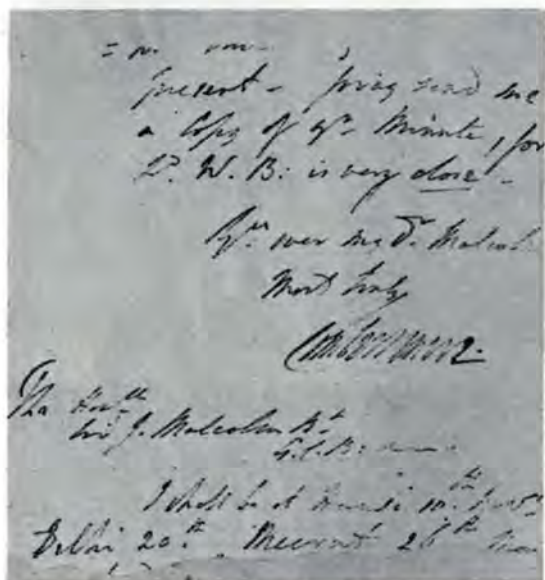 present - pray send me
a Copy of yr. Minute, for
Ld. W. B: is very close -
Yrs. ever my Dr. Malcol
Most truly
Combermere.
The Honble
Sir J. Malcolm Kt
G.C.B.
I shall be at 10th
Delhi 20th. Meerut 26th